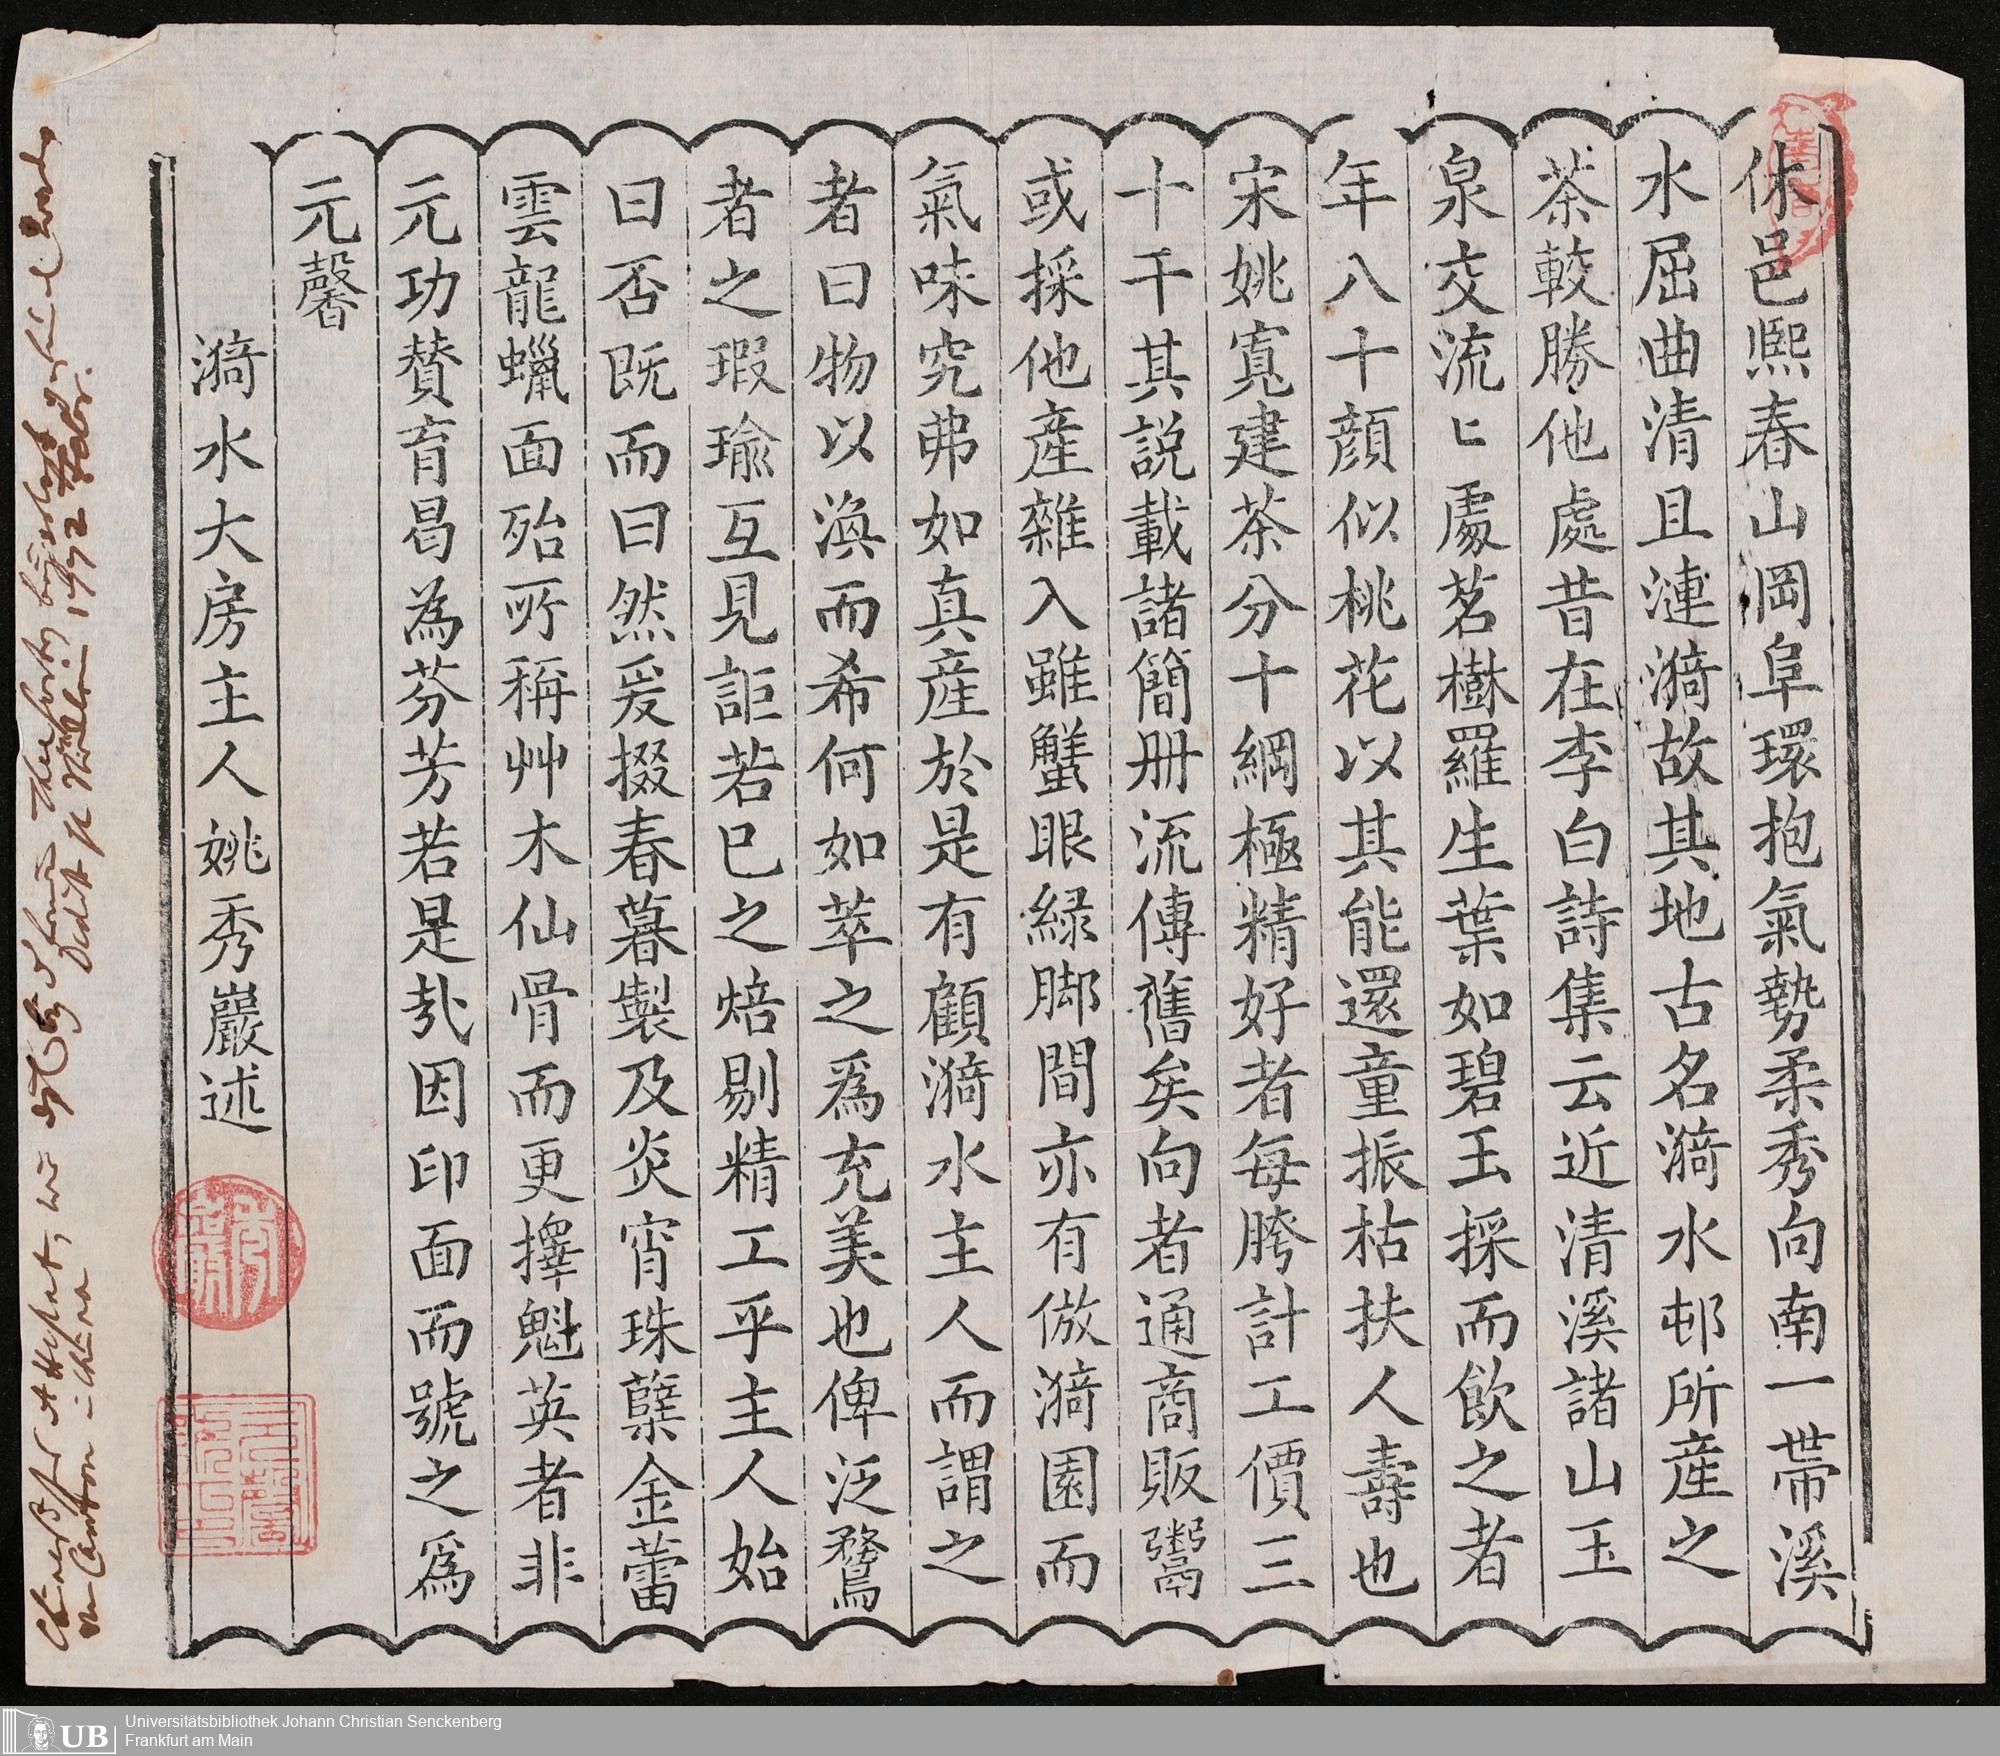 休邑熙春山岡阜環抱氣勢柔秀向南一帶溪
水屈曲清且漣漪故其地古名漪水邨所産之
茶較勝他處昔在李白詩集云近清溪諸山玉
泉交流〻處茗樹羅生葉如碧玉採而飲之者
年八十顔似桃花以其能還童振枯扶人壽也
宋姚寬建茶分十綱極精好者每胯計工價三
十千其説載諸簡册流傳舊矣向者通商販鬻
或採他產雜入雖蟹眼緑脚間亦有倣漪園而
氣味究弗如真産於是有顧漪水主人而謂之
者曰物以渙而希何如萃之爲充美也俾泛騖
者之瑕瑜互見詎若巳之焙剔精工乎主人始
曰否既而曰然爰掇春暮製及炎宵珠蘖金蕾
雲龍蠟面殆所稱艸木仙骨而更擇魁英者非
元功賛育曷為芬芳若是㢤因印面而號之爲
元馨
漪水大房主人姚秀巖述
in Canton in China
1772
Universitätsbibliothek Johann Christian Senckenberg
Frankfurt am Main
UB